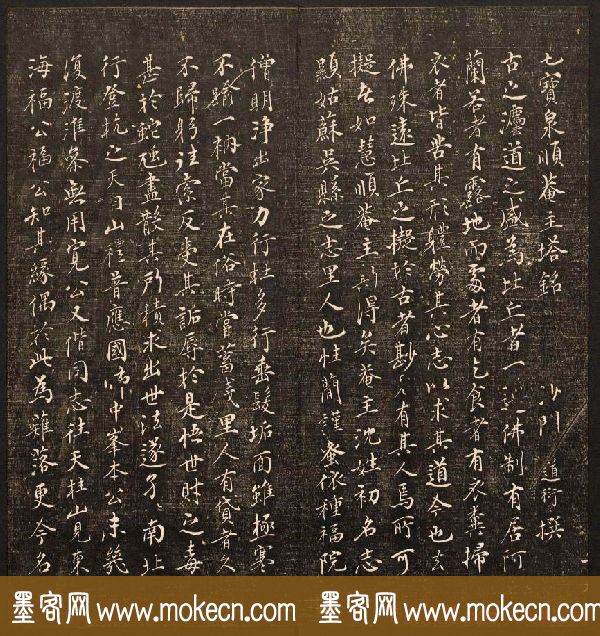 七寶泉順菴主塔銘 沙門 道衍撰
古之瀍道之盛為比丘者一遵佛制有居阿
蘭若者有露地而處者有乞食者有衣糞掃
衣者皆苦其形軆勞其心志以求其道今也去
佛殊遠比丘之擬於古者尠只有其人焉所可
擬者如慧順菴主斯得矣菴主沈姓初名志
顯姑蘇吳縣之志里人也性簡謹蚤依種福院
僧明淨出家力行杜多行垂髮垢面雖極寒
不踰一衲當其在俗時嘗蓄戔里人有貸者久
不歸躬往索反受其詬辱於是悟世財之毒
甚於蛇虺盡散其所積求出世法遂孑孑南北
行登杭之天目山禮普應國師中峯本公未幾
復渡淮參無用寬公又偕同志往天柱山見東
海福公福公知其緣偶於此為雉落更今名
墨客网 www.mokecn.com 墨客网 www.mokecn.com